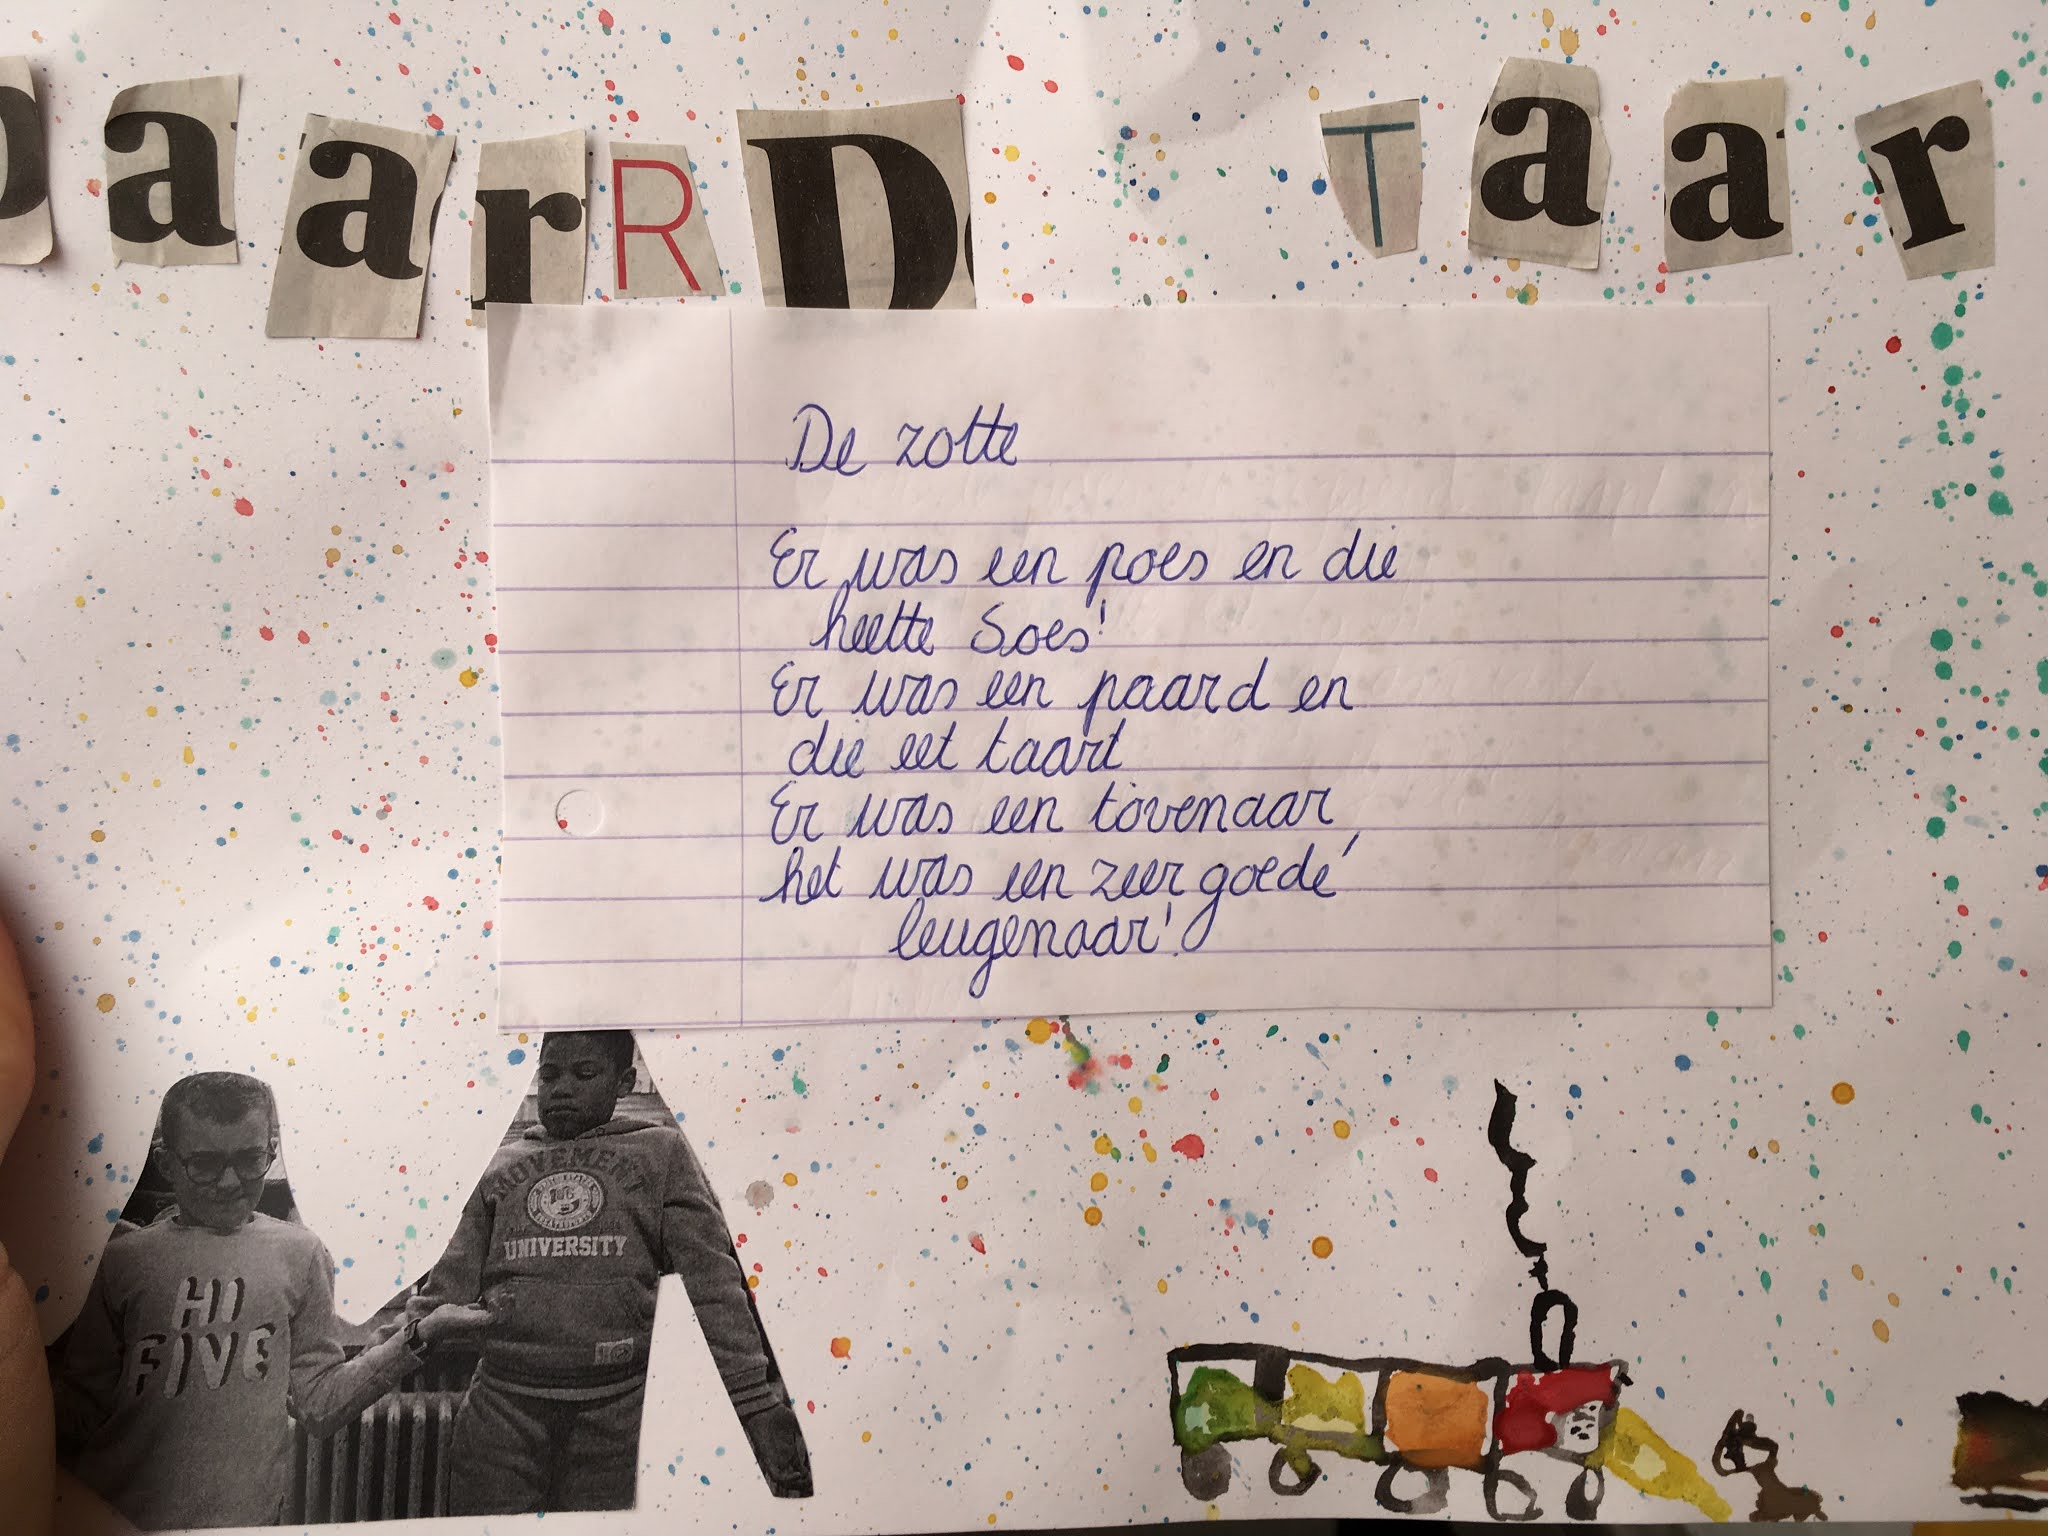 paarRD Taar
De zotte
Er was een poes en die
heette Soes!
Er was een paard en
die eet taart
Er was een tovenaar,
het was een zeer goede
leugenaar!
HI
FIVE
MOVEMENT
UNIVERSITY